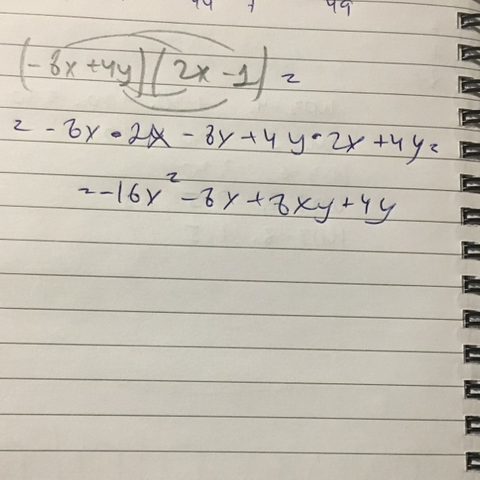 44 + 49
(-8x+4y)(2x-1)=
= -8x•2x - 8x+4y•2x+4y=
=-16x² -8x+8xy+4y